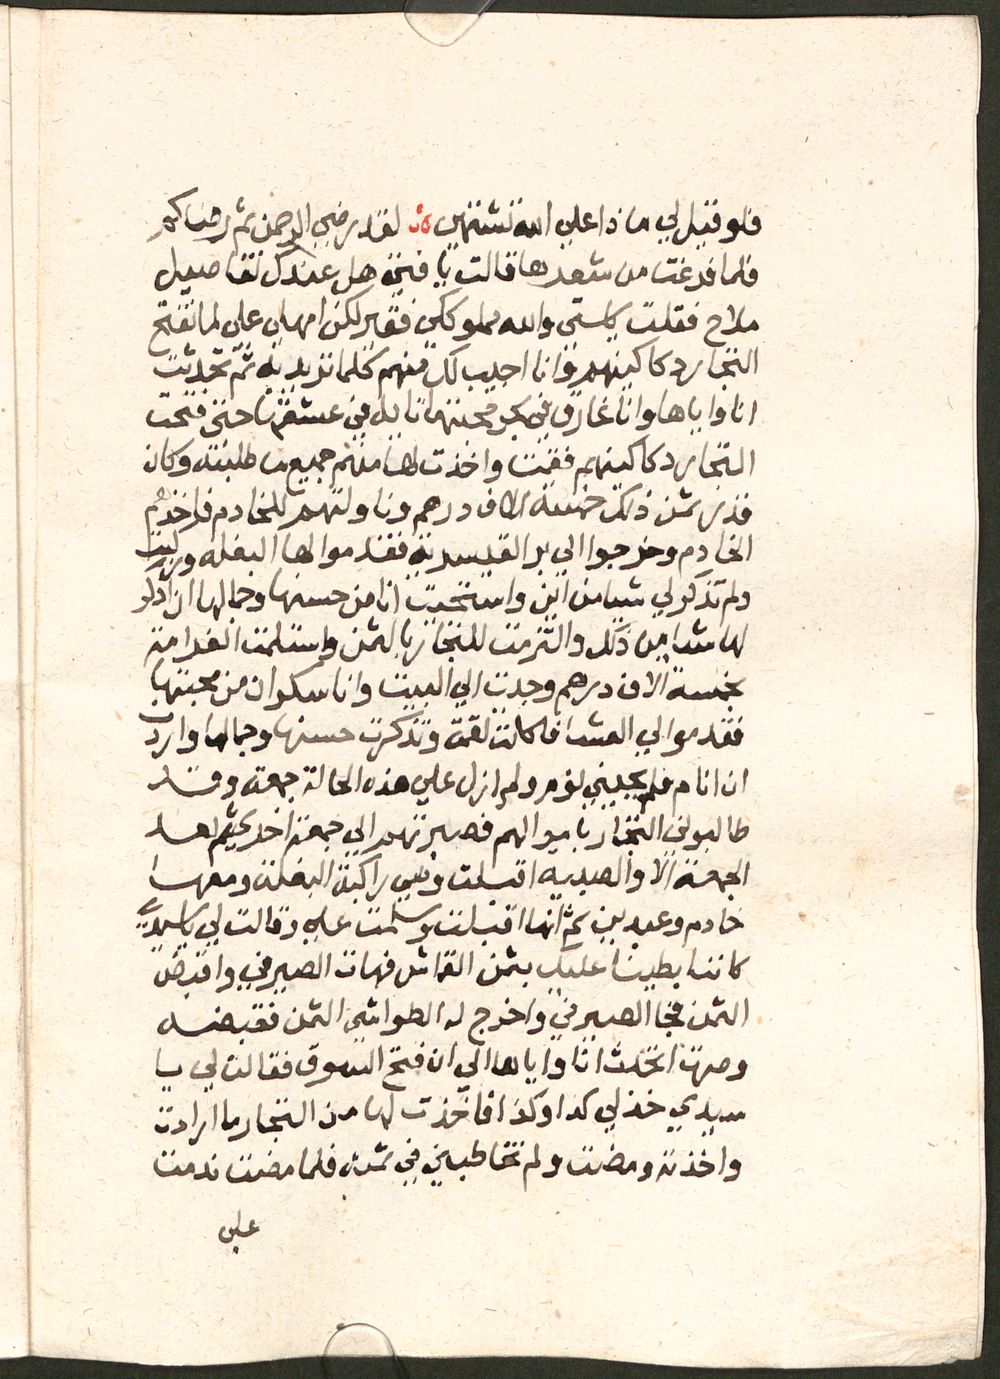 فلو قيل لي ما ذا علي الله تشتهي لقد رضي الرحمن ثم رضاكم
فلما فرغت من شعرها قالت يا فتي هل عندك تفاصيل
ملاح فقلت ياستي والله مملوككي فقير لكن امهلي علي لما تفتح
التجار دكاكينهم وانا اجيب لك منهم كلما تريديه ثم تحدثت
انا واياها وانا غارق في بحر محبتها تايه في عشقتها حتي فتحت
التجار دكاكينهم فقمت واخذت لها منهم جميع ما طلبته وكان
قدر ثمن ذلك خمسة الاف درهم وناولتهم للخادم فاخذهم
الخادم وخرجوا الي برا القيسرية فقدموا لها البغله وركبت
ولم تذكر لي شيا من اين واستحيت انا من حسنها وجمالها ان اذكر
لها شيا من ذلك والتزمت للتجار بالثمن واستلمت الغرامة
بخمسة الاف درهم وجيت الي البيت وانا سكران من محبتها
فقدموا لي العشا فاكلت لقمة وتذكرت حسنها وجمالها واردت
ان انام فلم يجيني نوم ولم ازل علي هذه الحالة جمعة وقد
طالبوني التجار باموالهم فصبرتهم الي جمعة اخري ثم بعد
الجمعة الا والصبيه اقبلت وهي راكبة البغلة ومعها
خادم وعبدين ثم انها اقبلت وسلمت علي وقالت لي ياسيدي
كاننا ابطينا عليك بثمن القماش فهات الصيرفي واقبض
الثمن فجا الصيرفي واخرج له الطواشي الثمن فقبضه
وصرت اتحدث انا واياها الي ان فتح السوق فقالت لي يا
سيدي خذ لي كدا وكذا فاخذت لها من التجار ما ارادت
واخذته ومضت ولم تخاطبني في ثمنه فلما مضت ندمت
علي